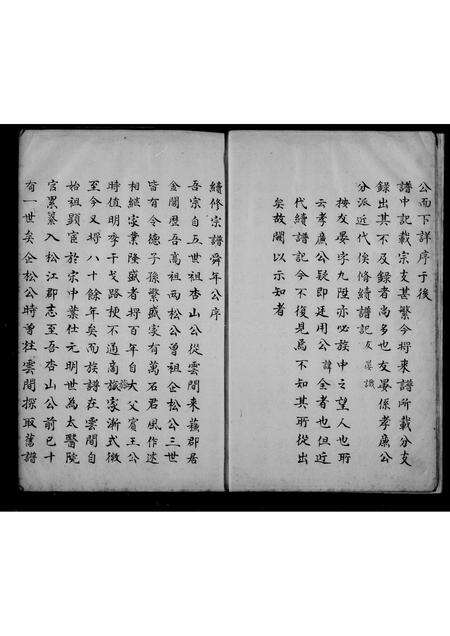 公而下詳序于後
譜中記載宗支甚繁今將來譜所載分支
錄出其不及錄者尚多也友晏係孝廉公
分派近代俟脩續譜記友晏識
按友晏字九陞亦必族中之望人也所
云孝廉公疑即廷用公諱全者也但近
代續譜記今不復見焉不知其所從出
矣故闕以示知者
續修宗譜舜年公序
吾宗自五世祖杏山公從雲間來蘇郡居
金閶歷吾高祖兩松公曾祖企松公三世
皆有令德子孫繁盛家有萬石君風作述
相繼家業隆盛者將百年自大父賓王公
時值明季干戈路梗不通高識家漸式微
至今又將八十餘年矣而族譜在雲間自
始祖顯宦於宋中葉仕元明世為太醫院
官累纂入松江郡志至吾杏山公前已十
有一世矣企松公時曾往雲間探取舊譜